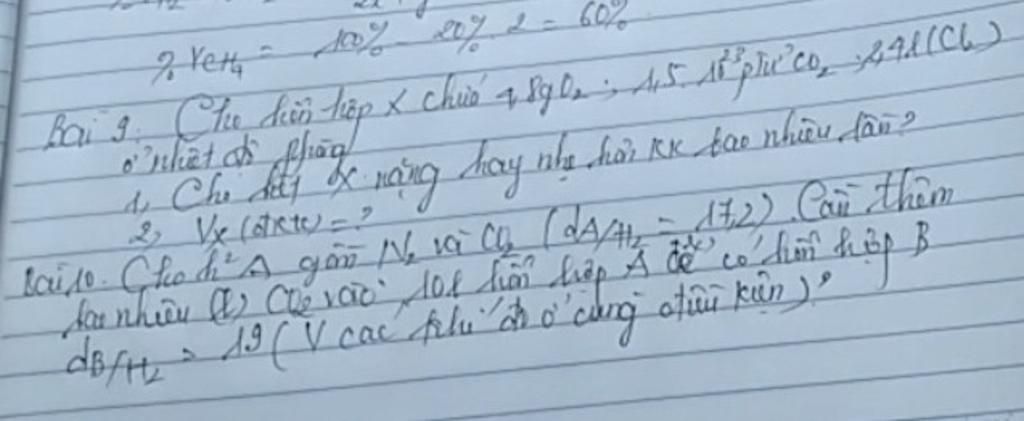 % VCH₄ = 100% - 20%. 2 = 60%
Bài 9. Cho hỗn hợp X chứa 4,8g O₂ ; 1,5. 10²³ ptử CO₂ ; (Cl₂)
ở nhiệt độ phòng
1, Cho biết X nặng hay nhẹ hơn KK bao nhiêu lần?
2, Vx (đktc) = ?
Bài 10. Cho h² A gồm N₂ và CO₂ (dA/H₂ = 17,2). Cần thêm
bao nhiêu (l) CO₂ vào 10l hỗn hợp A để có hỗn hợp B
dB/H₂ = 19 (V các khí đo ở cùng điều kiện)?